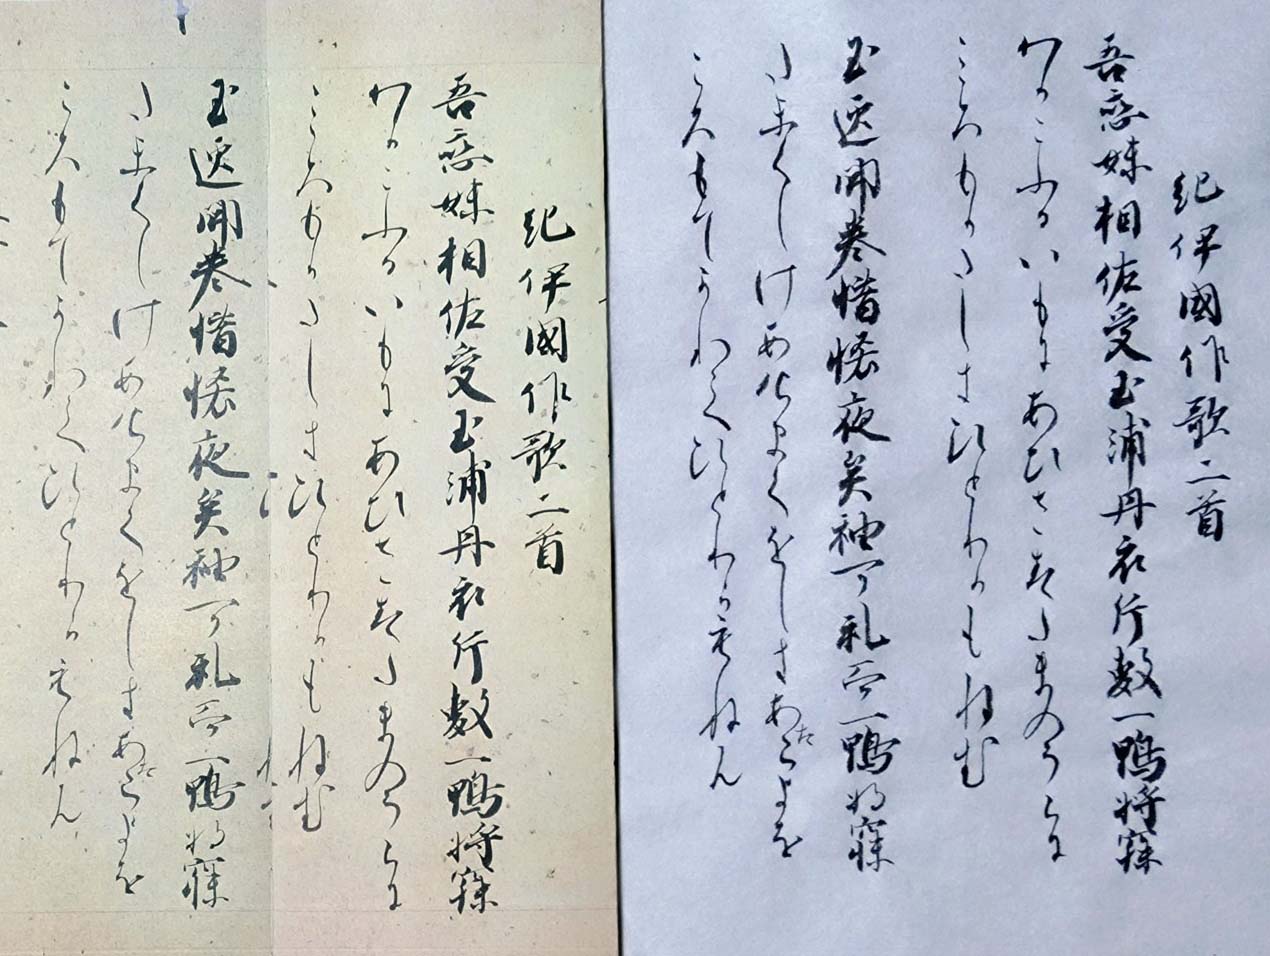 紀伊國作歌二首
吾恋妹相佐受玉浦丹衣片敷一鴨将寐
わかこふるいもにあひさすたまのうらに
ころもかたしきひとりかもねむ
玉匣開巻惜恡夜矣袖可礼而一鴨将寐
たまくしけあけまくをしきあたらよを
ころもてかれてひとりかもねん
紀伊國作歌二首
吾恋妹相佐受玉浦丹衣片敷一鴨将寐
わかこふるいもにあひさすたまのうらに
ころもかたしきひとりかもねむ
玉匣開巻惜恡夜矣袖可礼而一鴨将寐
たまくしけあけまくをしきあたらよを
ころもてかれてひとりかもねん